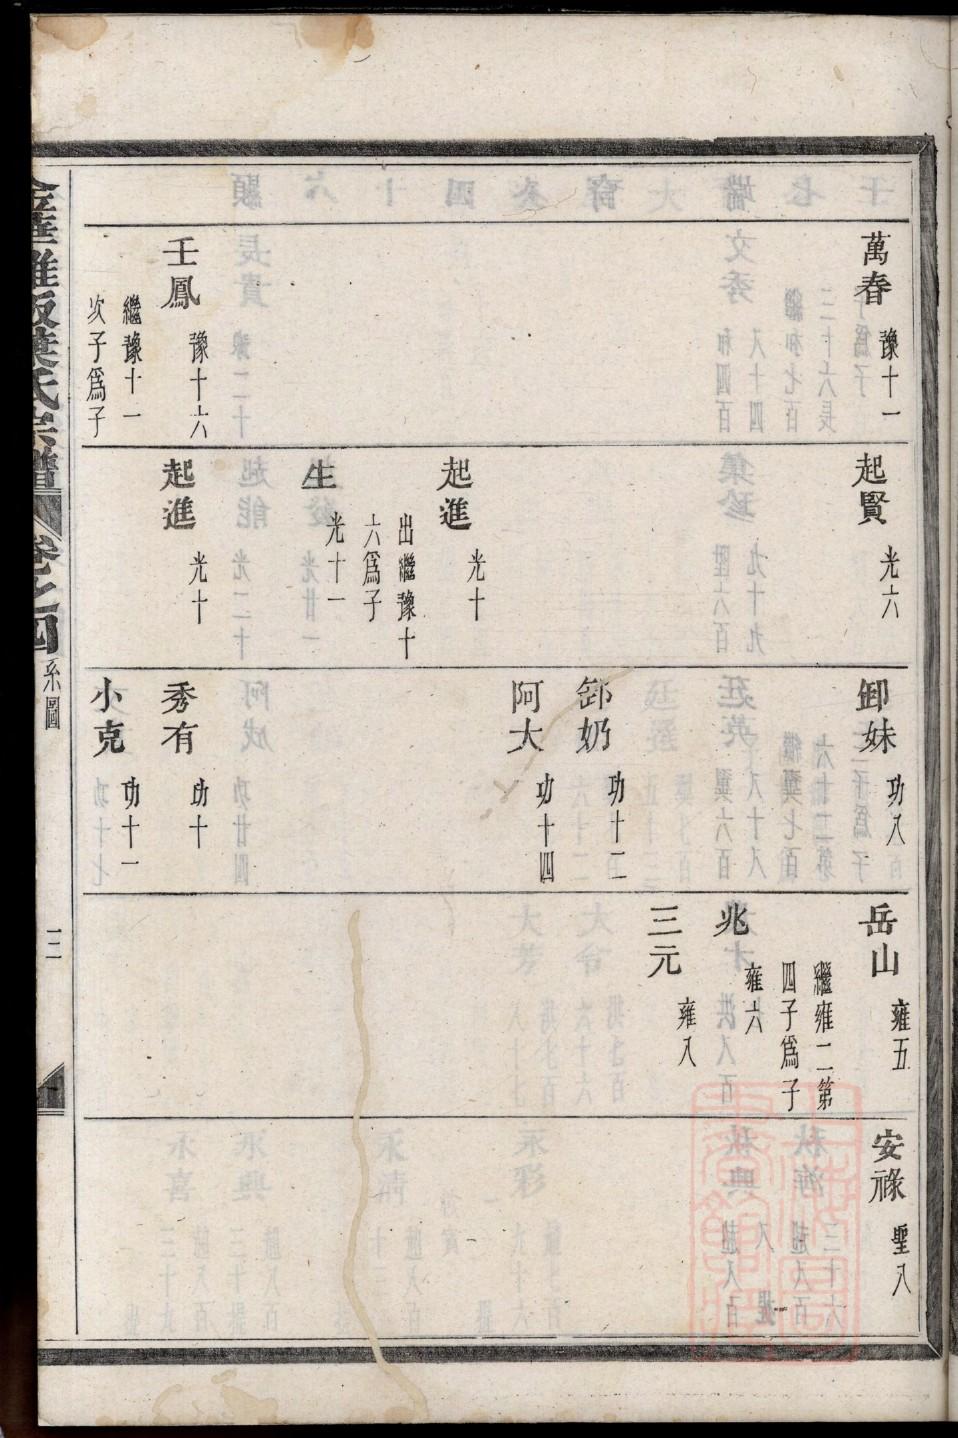 萬春
豫十一
壬鳳
豫十六
繼豫十一
次子爲子
起賢
光六
起進
光十
出繼豫十
六爲子
生
光十一
起進
光十
卸妹
功八
卸奶
功十二
阿大
功十四
秀有
功十
小克
功十一
岳山
雍五
繼雍二第
四子爲子
兆
雍六
三元
雍八
安祿
聖八
氏宗譜
卷之四
系圖
三